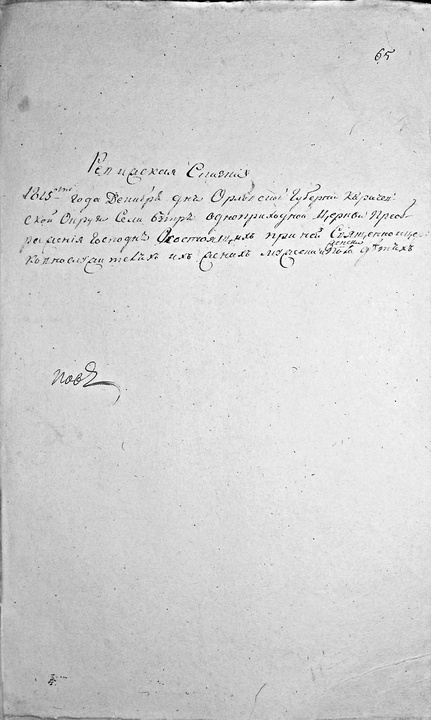 65
Ревизская Сказка
1815 года Декабря дня Орловской Губернии Карачев
ской Округи Села Бытре одноприходной Церкви Преоб
ражения Господня Осостоящихъ приней Священноице
женска
ковнослужителяхъ ихъ женахъ мужеска пола детяхъ
4